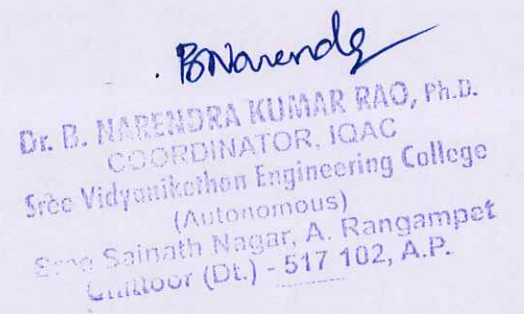 B Narendra
Dr. B. NARENDRA KUMAR RAO, Ph.D.
COORDINATOR, IQAC
Sree Vidyanikethan Engineering College
(Autonomous)
Sainath Nagar, A. Rangampet
Chittoor (Dt.) - 517 102, A.P.